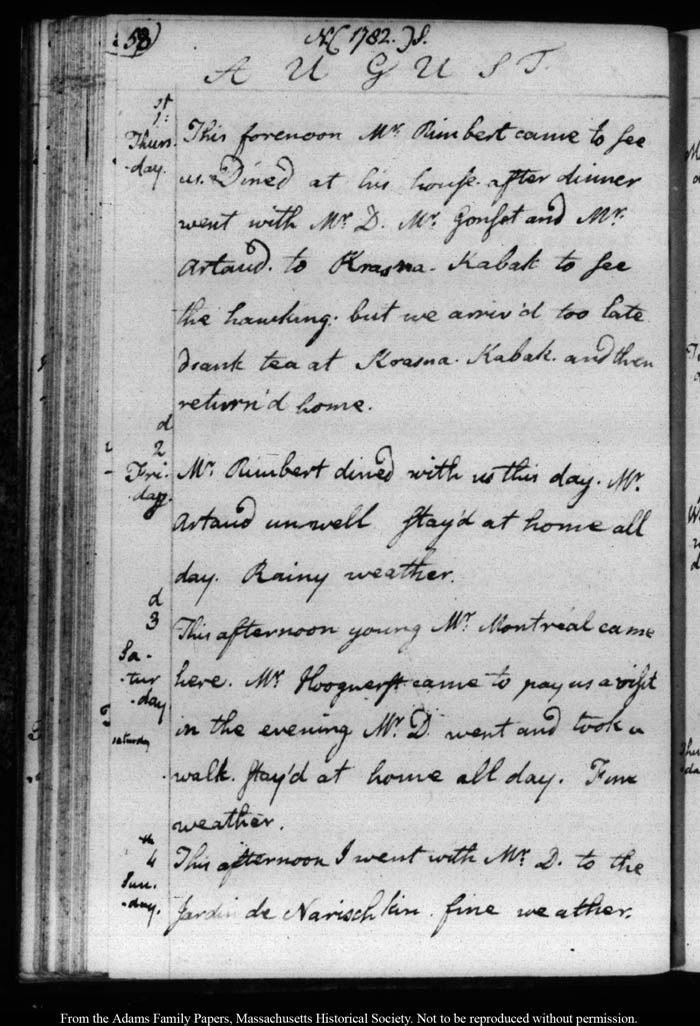 58)
N( 1782. )S.
A U G U S T.
1st:
Thurs-
-day.
This forenoon Mr. Rimbert came to see
us. Dined at his house. after dinner
went with Mr. D. Mr. and Mr.
Artaud. to Krasna. Kabak to see
the hawking. but we arriv'd too late
drank tea at Krasna. Kabak. and then
return'd home.
2d
Fri-
-day.
Mr. Rimbert dined with us this day. Mr.
Artaud unwell stay'd at home all
day. Rainy weather.
3d
Sa-
-tur
-day
saturday
This afternoon young Mr. Montréal came
here. Mr. came to pay us a visit
in the evening Mr. D. went and took a
walk. stay'd at home all day. Fine
weather.
4th
Sun.
-day.
This afternoon I went with Mr. D. to the
Jardin de Narischkin. fine weather.
From the Adams Family Papers, Massachusetts Historical Society. Not to be reproduced without permission.